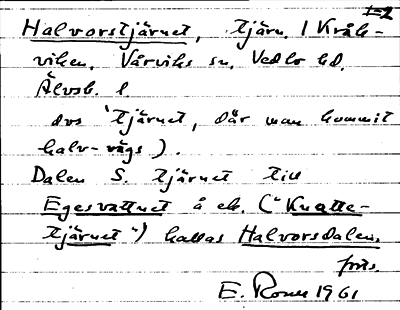 1-2
Halvorstjärnet, tjärn. I Kråk-
viken. Vårviks sn. Vedbo hd.
Älvsb. l.
dvs 'tjärnet, där man kommit
halv-vägs').
Dalen S. tjärnet till
Egesvattnet å ek. ("Knatte-
tjärnet") kallas Halvorsdalen.
forts.
E. Rosen 1961